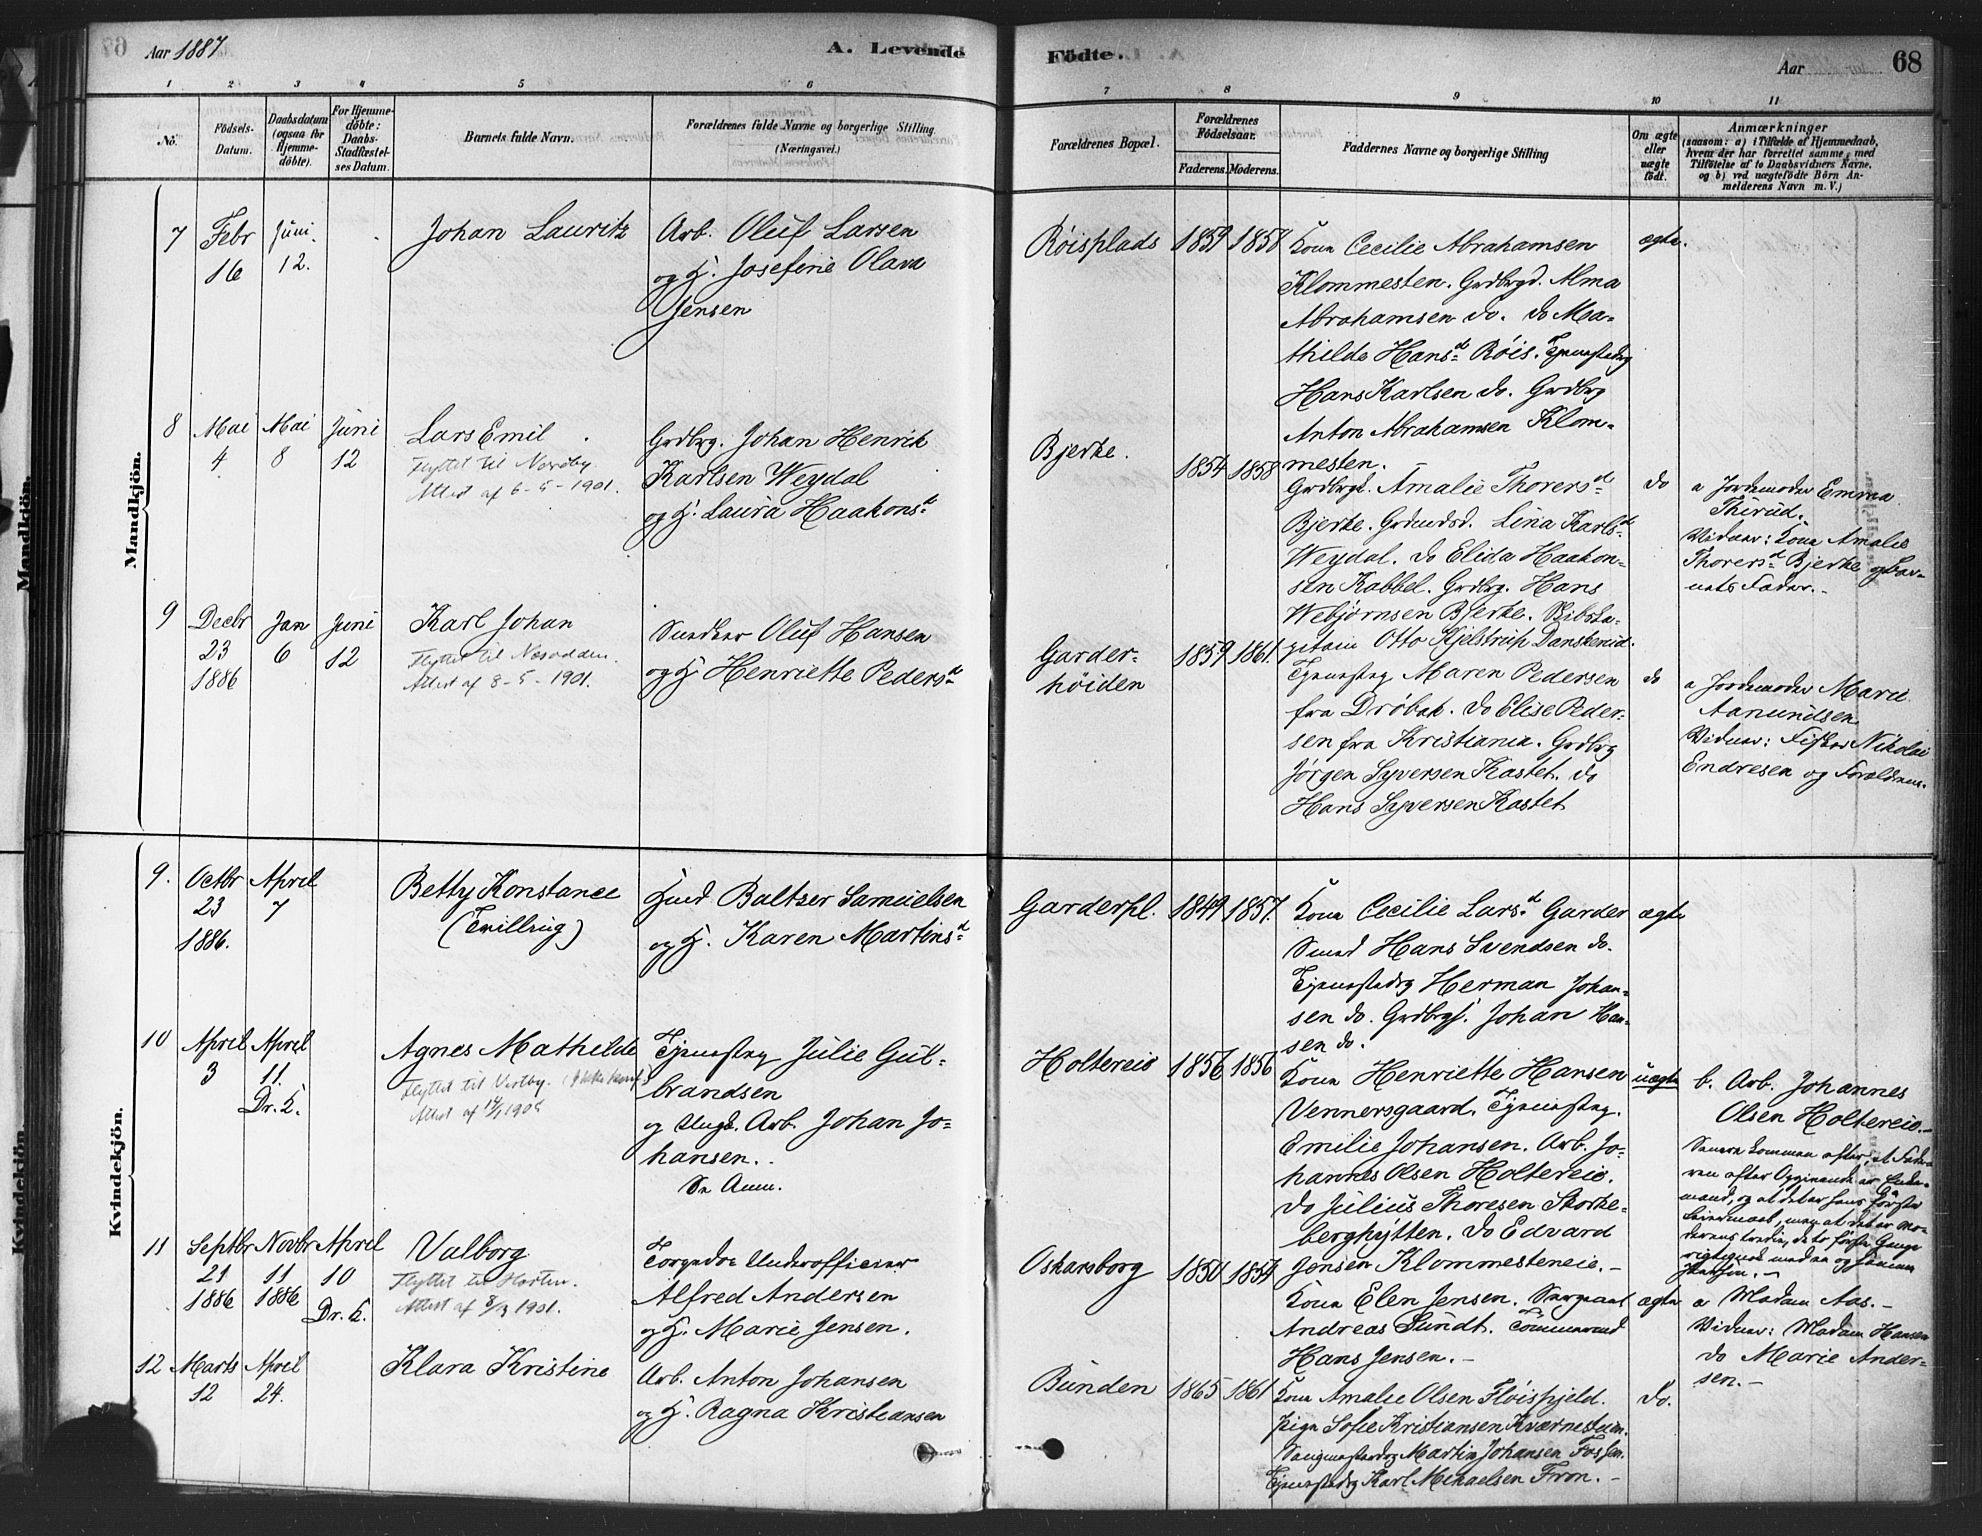 Aar 1887
A. Levende
Fødte.
Aar
68
1 2 3 4 5 6 7 8 9 10 11
No.
Fødsels-
Datum.
Daabsdatum
(ogsaa for
Hjemme-
døbte).
For Hjemme-
døbte:
Daabs-
Stadfæstel-
ses Datum.
Barnets fulde Navn.
Forældrenes fulde Navne og borgerlige Stilling
(Næringsvei.)
Forældrenes Bopæl.
Forældrenes
Fødselsaar.
Faderens. Moderens.
Faddernes Navne og borgerlige Stilling
Om ægte
eller
uægte
født.
Anmærkninger
(saasom: a) i Tilfælde af Hjemmedaab,
hvem der har forrettet samme, med
Tilføielse af to Daabsvidners Navne,
og b) ved uægtefødte Børn An-
melderens Navn m. V.)
Mandkjøn.
7
Febr
16
Juni
12.
Johan Lauritz
Arb. Oluf Larsen
og H. Josefine Olava
Jensen
Røisplads
1859 1858
Kona Cecilie Abrahamsen
Klommesten. Grdbrgd. Alma
Abrahamsen do. do Ma-
thilde Hansd Røis. Tjenestedrg
Hans Karlsen do. Grdbrg
Anton Abrahamsen Klom-
mesten.
ægte.
8
Mai
4
Mai
8
Juni
12
Lars Emil
Flyttet til Nordby
Attest af 6-5-1901.
Grdbrg. Johan Henrik
Karlsen Weydal
og H. Laura Haakonsd
Bjerke.
1854 1858
Grdbrgk. Amalie Thorersd
Bjerke. Grdmdsd. Lina Karlsd
Weydal. do Elida Haakon-
sen Kabbel. Grdbrg. Hans
Webjørnsen Bjerke. Skibska-
pitain Otto Kjelstrup Danskenid.
do
a Jordemoder Emma
Thirud.
Vidner: Kona Amalie
Thorersd Bjerke og Bar-
nets Fader.-
9
Decbr
23
1886
Jan
6
Juni
12
Karl Johan
Flyttet til Nesodden.
Attest af 8-5-1901.
Snedker Oluf Hansen
og H Henriette Pedersd
Garder-
høiden
1859 1861.
Tjenestpg Maren Pedersen
fra Drøbak. do Elise Peder-
sen fra Kristiania. Grdbrg
Jørgen Syversen Kastet. do
Hans Syversen Kastet
do
a Jordemoder Marie
Aanundsen
Vidner: Fisker Nikolai
Endresen og Forældrene.
Kvindekjøn.
9.
Octbr
23
1886.
April
7
Betty Konstance
(Tvilling)
Hmd Baltzer Samuelsen
og H. Karen Martinsd
Garderpl.
1849 1857.
Kona Cecilie Larsd Garder
Smed Hans Svendsen do.
Tjenestedrg Herman Johan-
sen do. Grdbrgs. Johan Han-
sen do.
ægte
10
April
3
April
11.
Dr. K.
Agnes Mathilde
Flyttet til Vestby. (Ikke konf.)
Attest af
Tjenestpg Julie Gul-
brandsen
og Ungk. Arb. Johan Jo-
hansen.
Se Anm.
Holtereie
1856 1856
Kona Henriette Hansen
Vennersgaard. Tjenestpg.
Emilie Johansen. Arb. Jo-
hannes Olsen Holtereie.
do Julius Thoresen Storke-
berghytten. do Edvard
Jensen Klommesteneie.-
uægte
b. Arb. Johannes
Olsen Holtereie.-
Senere kommen efter, at Fade-
ren efter Opgivende er Lands-
mand, og at det er hans første
Leiermaal, men at det er Mo-
derens tredie, de to første Gange
11
Septbr
21
1886
Novbr
11
1886
April
10
Dr. K.
Valborg
Flyttet til Horten.
Attest af 8/3 1901.
Torpedo Underofficier
Alfred Andersen
og H. Marie Jensen.
Oskarsborg
1850 1854
Kona Elen Jensen. Sergeant
Andreas Sundt. Tømmermd
Hans Jensen.-
ægte
a Madam Aas.-
Vidner: Madam Hansen
do Marie Ander-
sen.-
12
Marts
12
April
24.
Klara Kristine
Arb. Anton Johansen
og H. Ragna Kristiansen
Bunden
1865 1861
Kona Amalie Olsen Fløispjeld.
Pige Sofie Kristiansen Kværnestuen.
Martin Johansen
Tjenestedrg Karl Mikaelsen Fron.-
do.